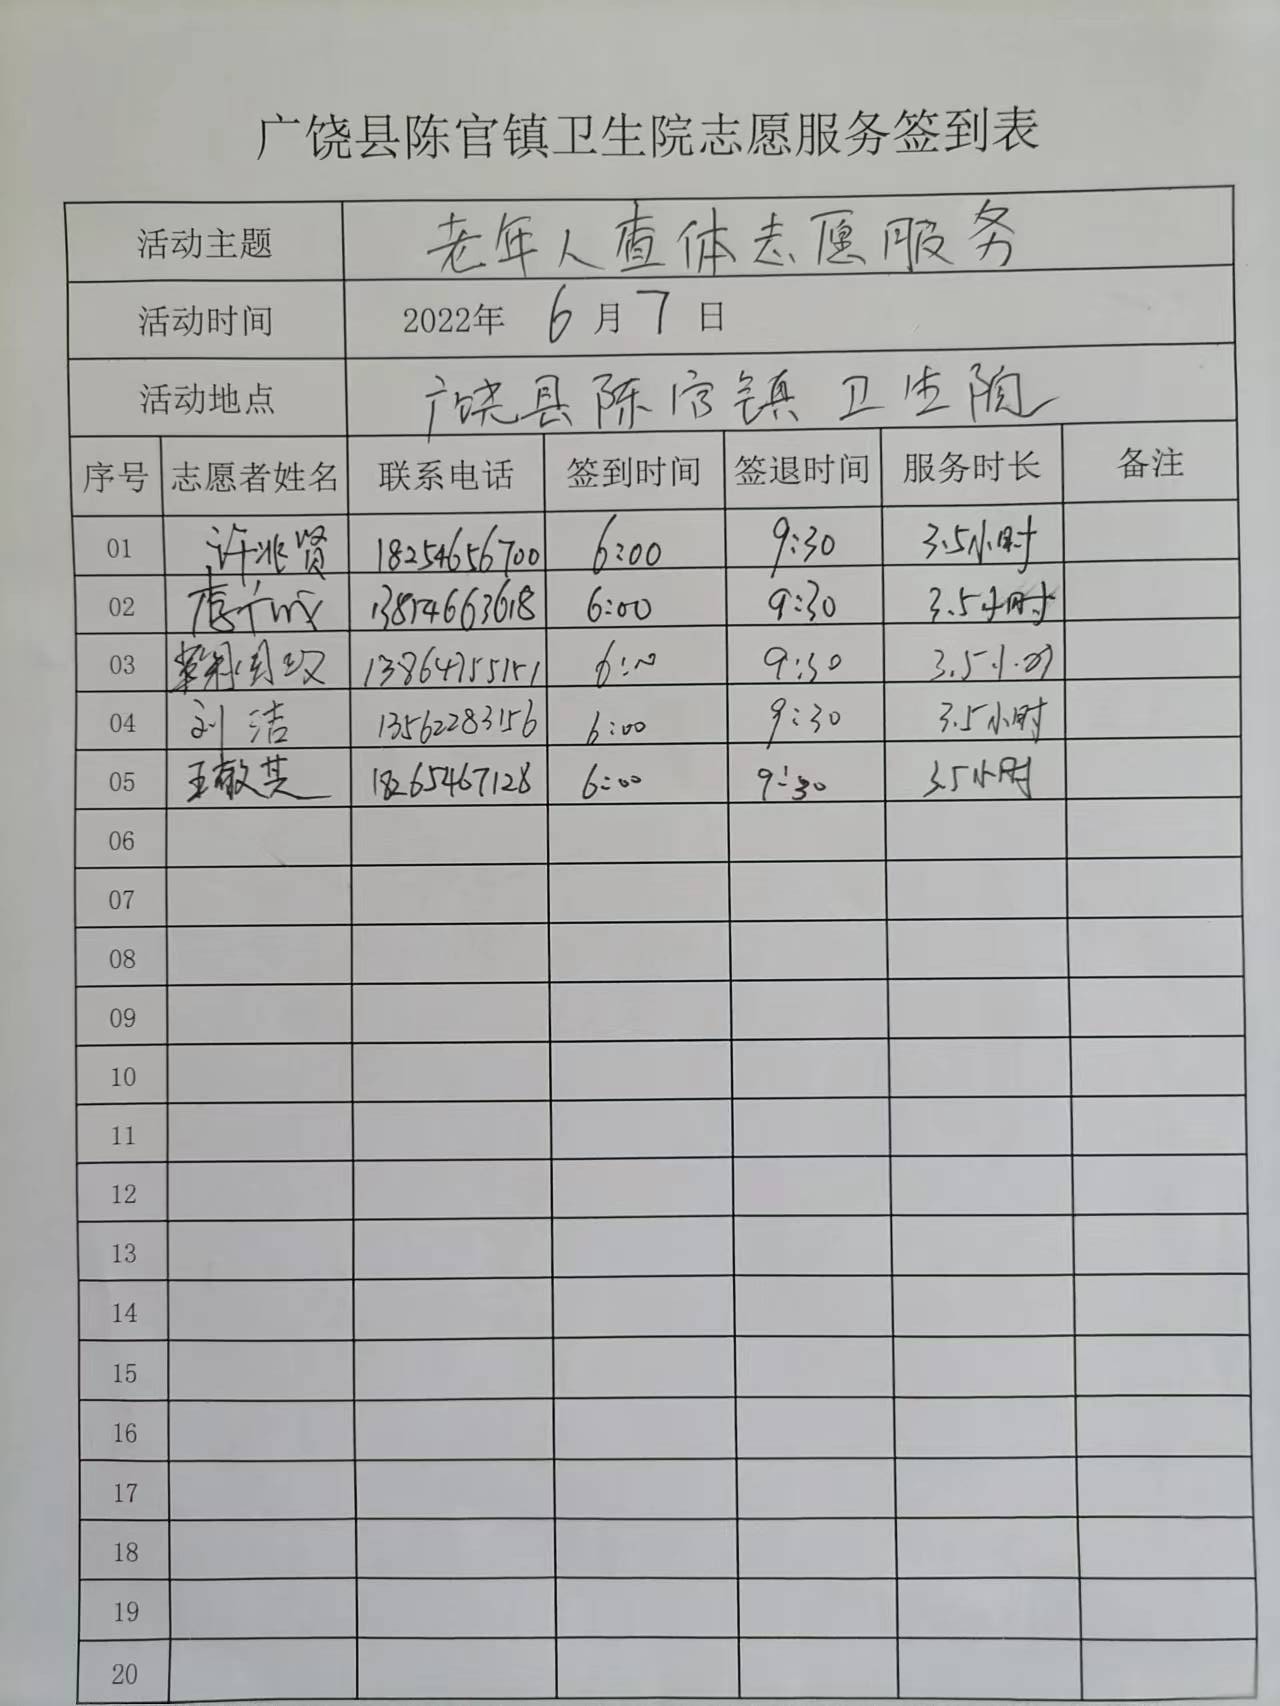 广饶县陈官镇卫生院志愿服务签到表
活动主题 老年人查体志愿服务
活动时间 2022年 6月7日
活动地点 广饶县陈官镇卫生院
序号 志愿者姓名 联系电话 签到时间 签退时间 服务时长 备注
01 许兆贤 18254656700 6:00 9:30 3.5小时
02 13814663618 6:00 9:30 3.5小时
03 13864755151 6:00 9:30 3.5小时
04 刘洁 13562283156 6:00 9:30 3.5小时
05 王敬其 18265467128 6:00 9:30 3.5小时
06
07
08
09
10
11
12
13
14
15
16
17
18
19
20